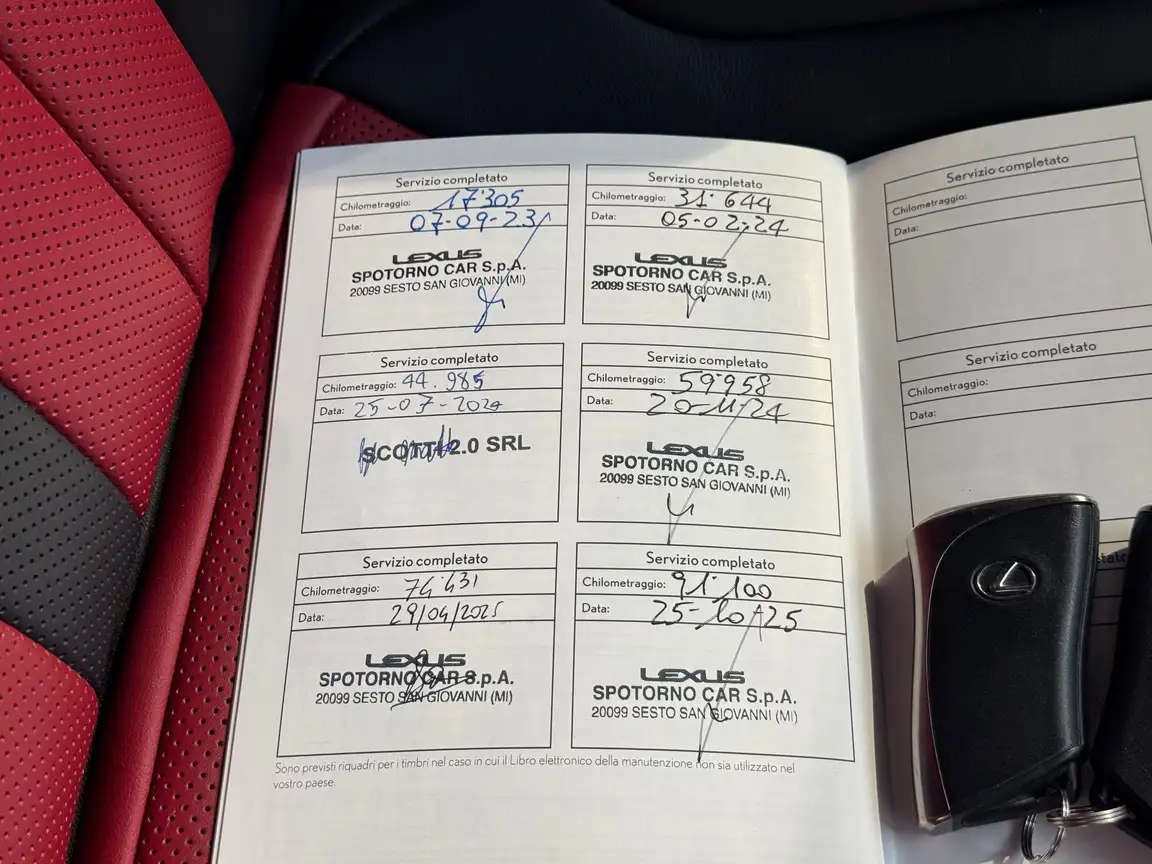 Servizio completato
Chilometraggio: 17'305
Data: 07-09-23
LEXUS
SPOTORNO CAR S.p.A.
20099 SESTO SAN GIOVANNI (MI)
Servizio completato
Chilometraggio: 31'644
Data: 05-02-24
LEXUS
SPOTORNO CAR S.p.A.
20099 SESTO SAN GIOVANNI (MI)
Servizio completato
Chilometraggio: 44.985
Data: 25-07-2024
SCOTTI 2.0 SRL
Servizio completato
Chilometraggio: 59'958
Data: 20-11-24
LEXUS
SPOTORNO CAR S.p.A.
20099 SESTO SAN GIOVANNI (MI)
Servizio completato
Chilometraggio: 74'431
Data: 29/04/2025
LEXUS
SPOTORNO CAR S.p.A.
20099 SESTO SAN GIOVANNI (MI)
Servizio completato
Chilometraggio: 91'100
Data: 25-10-25
LEXUS
SPOTORNO CAR S.p.A.
20099 SESTO SAN GIOVANNI (MI)
Sono previsti riquadri per i timbri nel caso in cui il Libro elettronico della manutenzione non sia utilizzato nel
vostro paese.
Servizio completato
Chilometraggio:
Data:
Servizio completato
Chilometraggio:
Data: